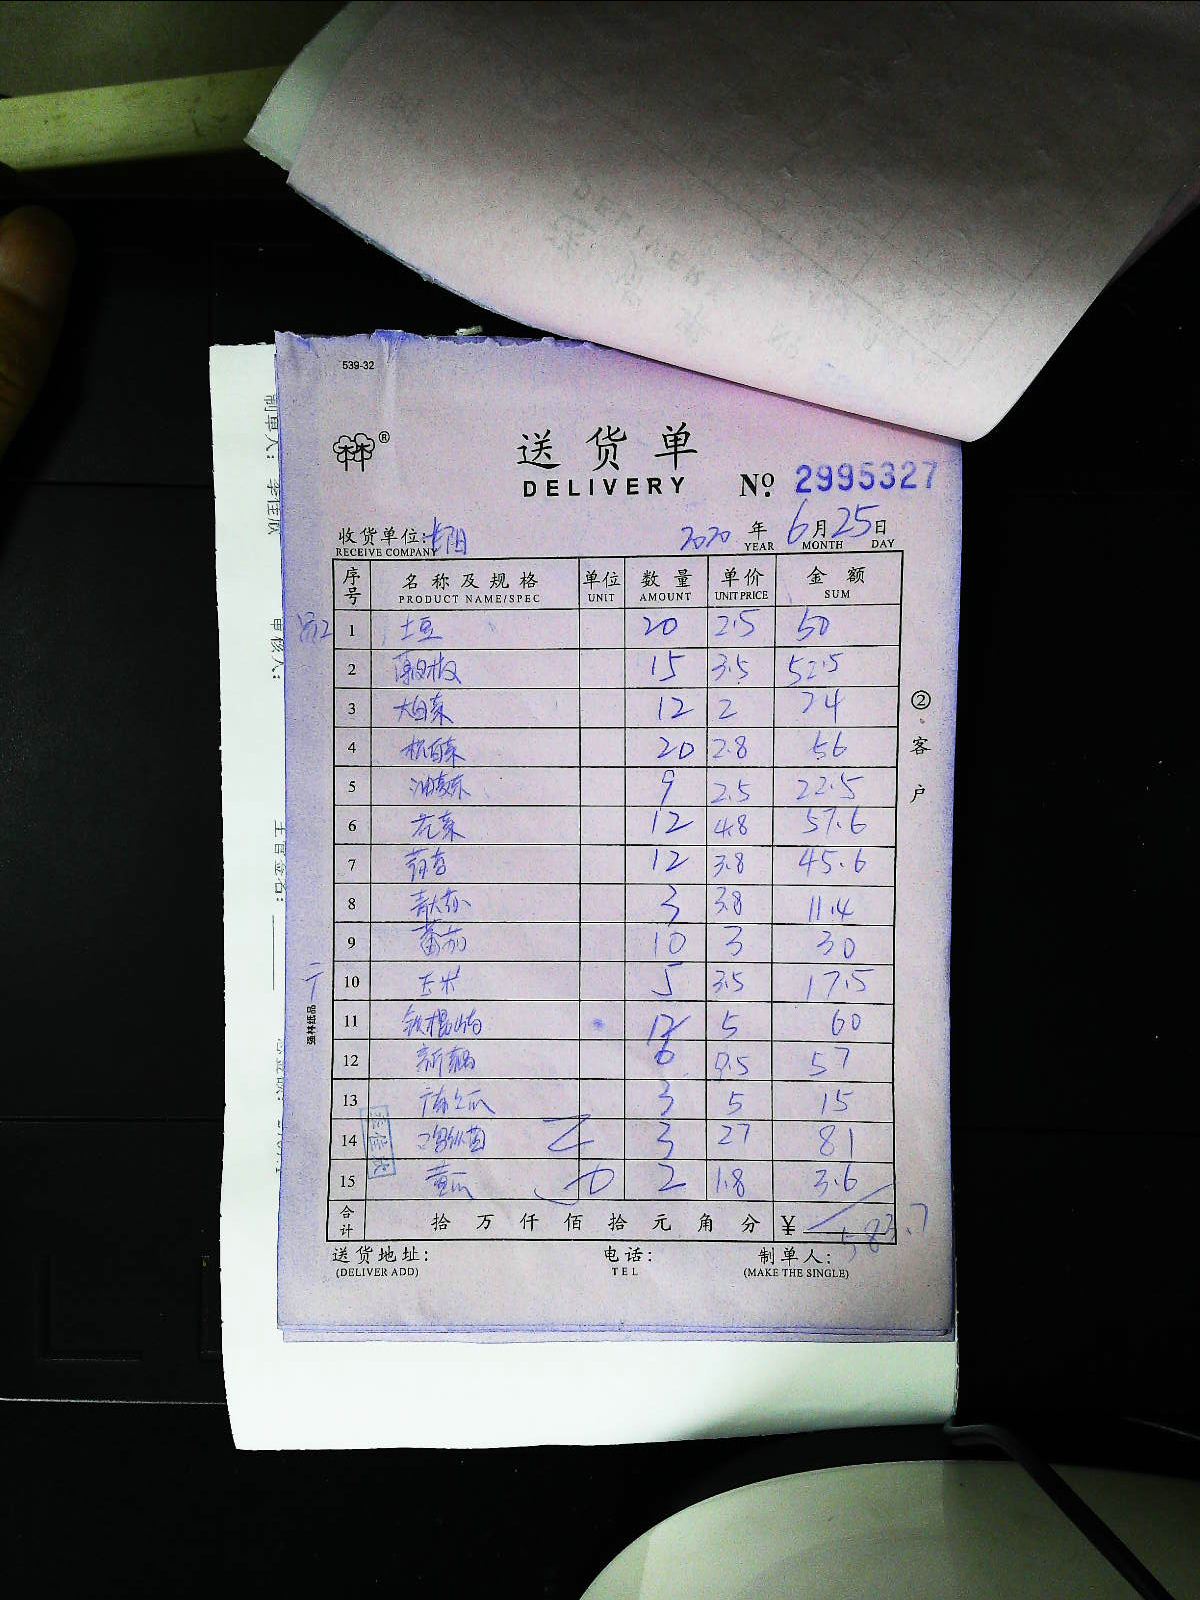 539-32
林®
送货单
DELIVERY
№ 2995327
收货单位:
RECEIVE COMPANY
2020年 6月 25日
YEAR MONTH DAY
序号 名称及规格 单位 数量 单价 金额
PRODUCT NAME/SPEC UNIT AMOUNT UNIT PRICE SUM
1 土豆 20 2.5 50
2 15 3.5 52.5
3 大白菜 12 2 24
4 杭白菜 20 2.8 56
5 油麦菜 9 2.5 22.5
6 花菜 12 4.8 57.6
7 12 3.8 45.6
8 3 3.8 11.4
9 蕃茄 10 3 30
10 玉米 5 3.5 17.5
11 铁棍山药 12 5 60
12 6 9.5 57
13 3 5 15
14 3 27 81
15 黄瓜 2 1.8 3.6
合计 拾万仟佰拾元角分 ¥ 583.7
送货地址: 电话: 制单人:
(DELIVER ADD) TEL (MAKE THE SINGLE)
②客户
强林纸品
制单人:
审核人: